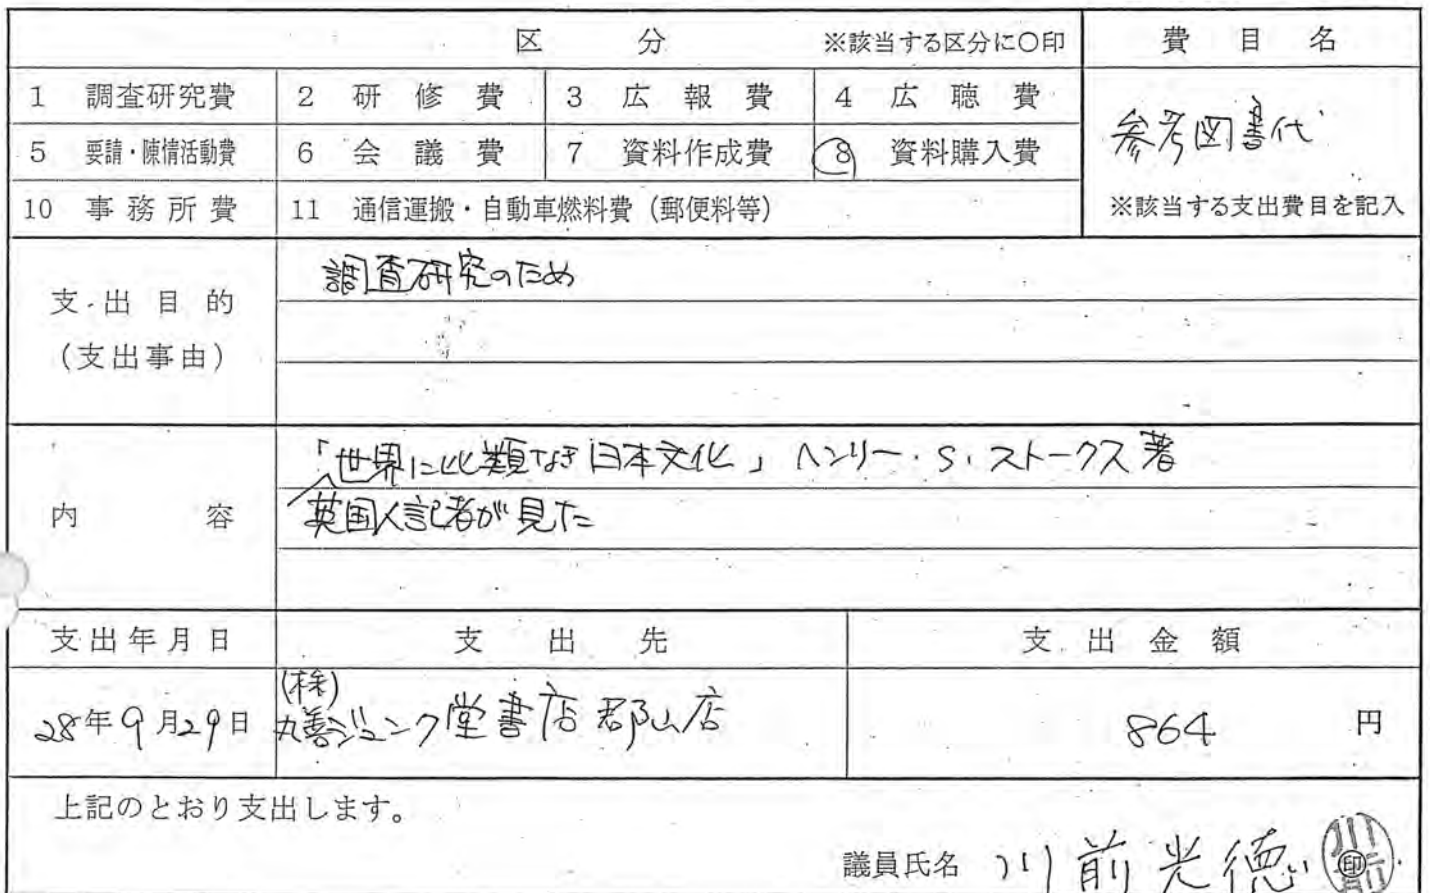 区 分 ※該当する区分に○印 費 目 名
1 調査研究費 2 研 修 費 3 広 報 費 4 広 聴 費
参考図書代
5 要請・陳情活動費 6 会 議 費 7 資料作成費 8 資料購入費
10 事務所費 11 通信運搬・自動車燃料費(郵便料等) ※該当する支出費目を記入
支出目的
(支出事由)
調査研究のため
内 容
「世界に比類なき日本文化」ヘンリー・S・ストークス著
英国人記者が見た
支出年月日 支 出 先 支 出 金 額
(株)
28年9月29日 丸善ジュンク堂書店郡山店 864 円
上記のとおり支出します。
議員氏名 川前光徳 印